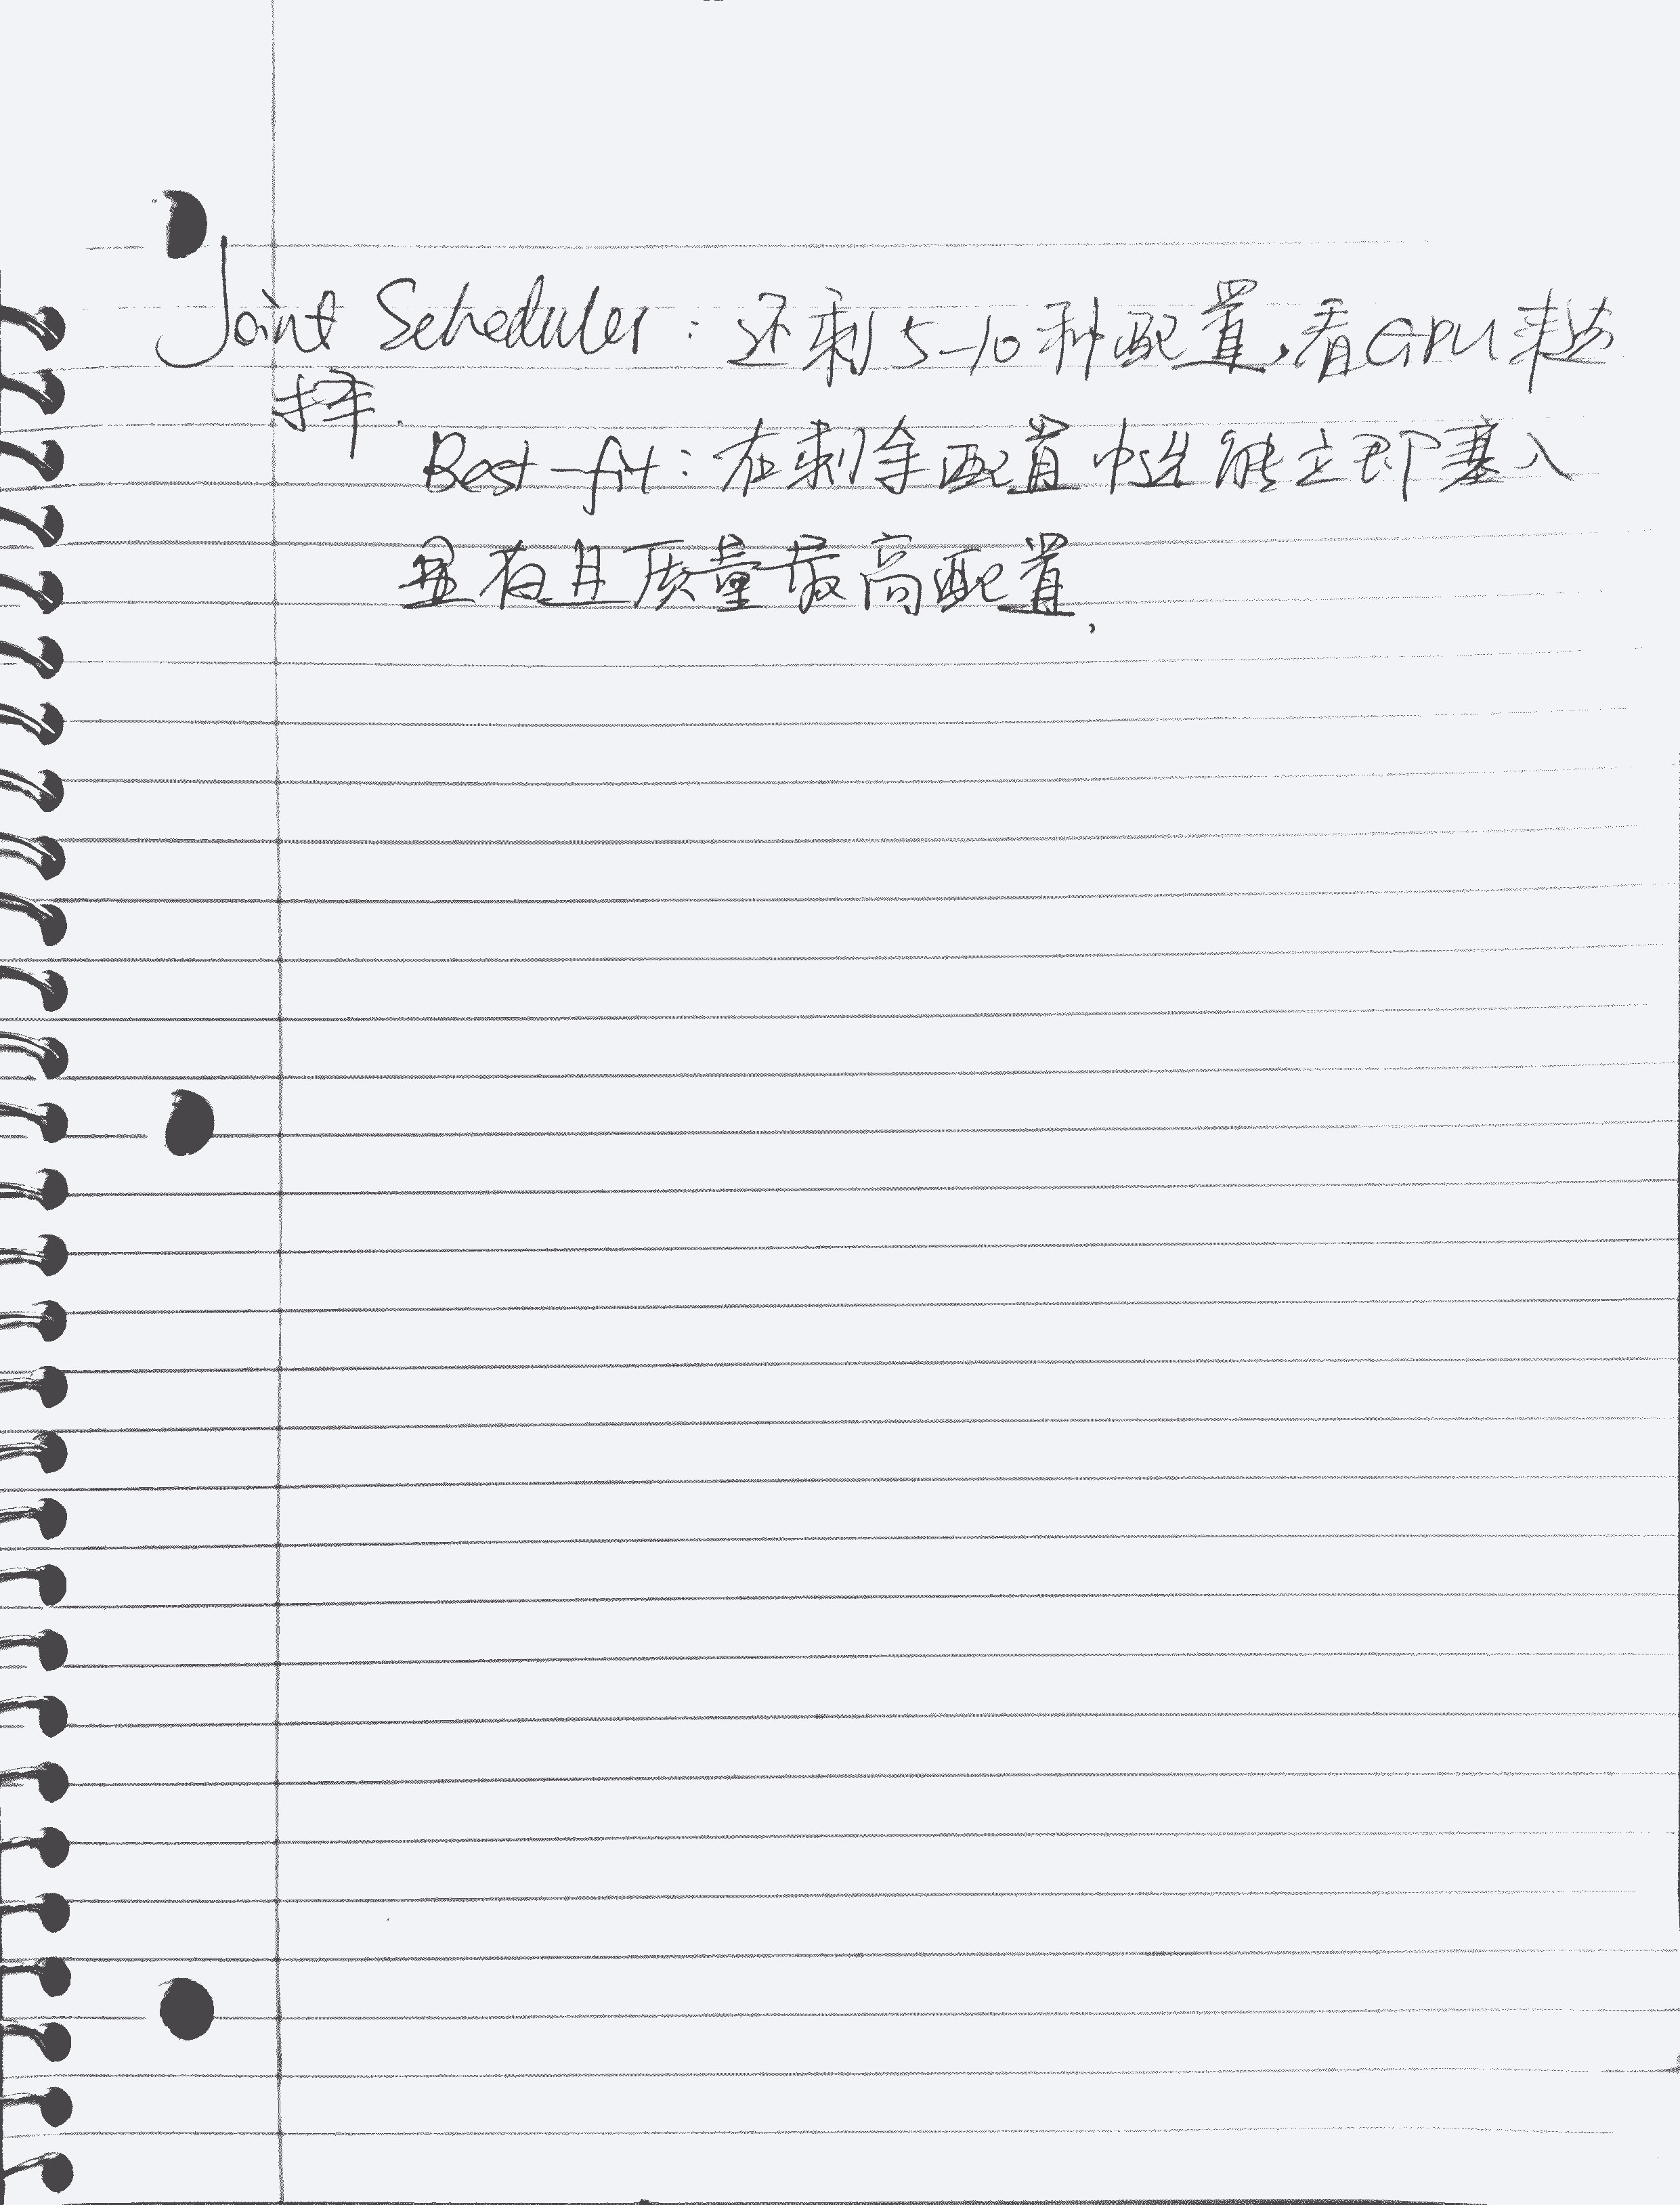 Joint Scheduler：还剩5-10种配置，看GPU来选
择.
Best-fit：在剩余配置中选能立即塞入
显存且质量最高配置.